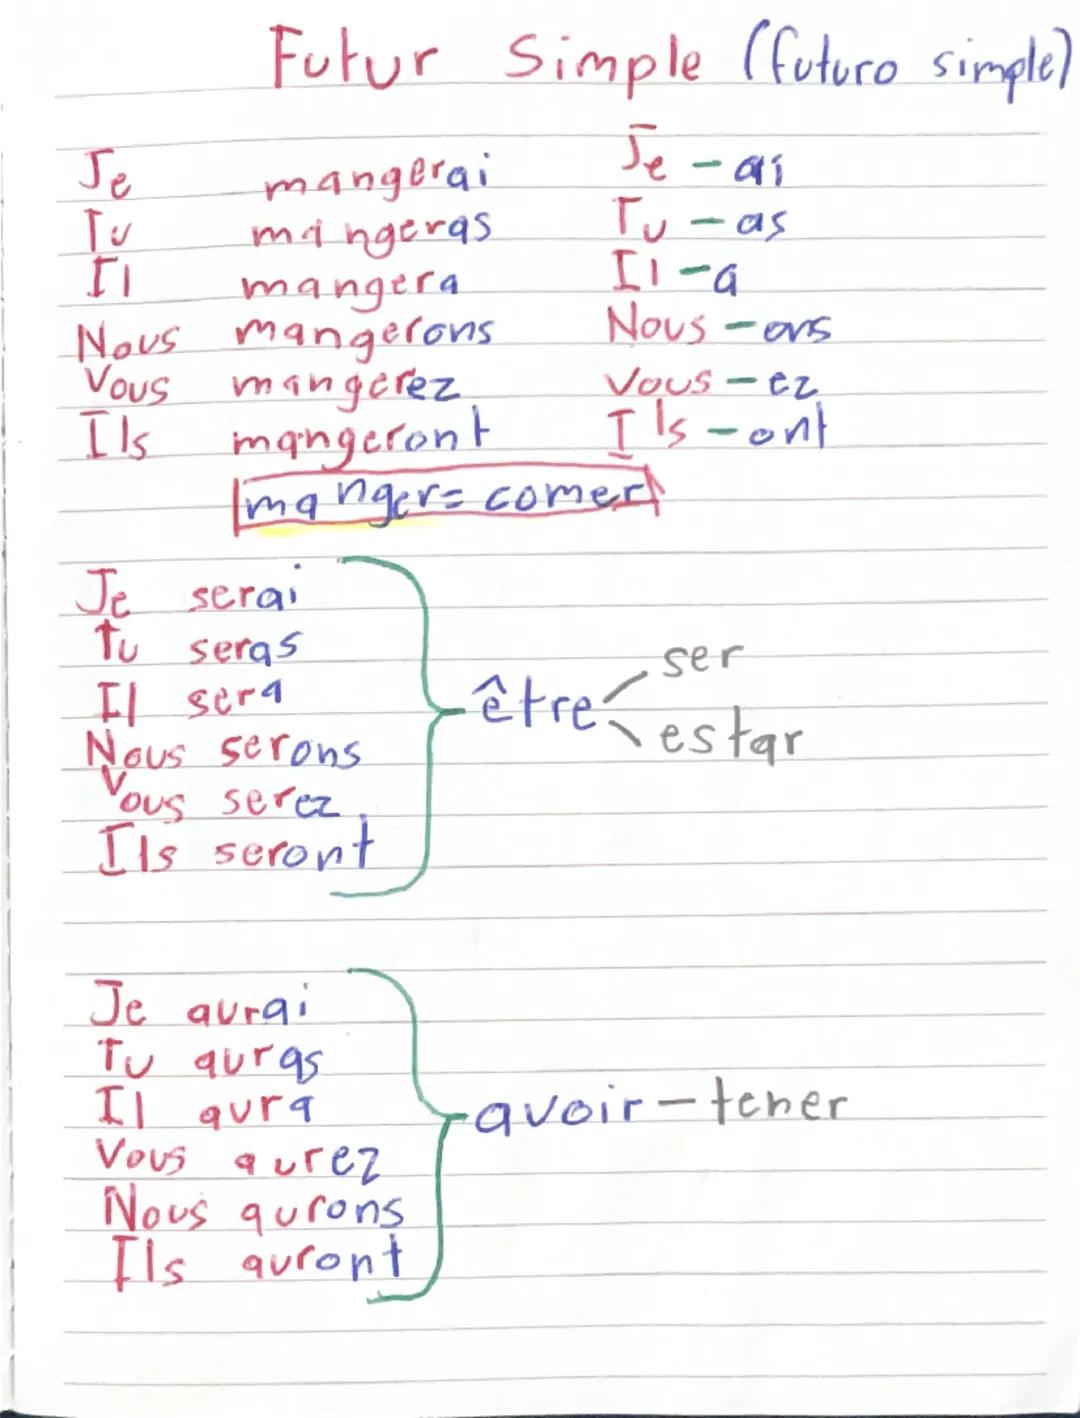 Futur Simple (futuro simple)
Je mangerai Je - ai
Tu mangeras Tu - as
Il mangera Il - a
Nous mangerons Nous - ons
Vous mangerez Vous - ez
Ils mangeront Ils - ont
manger = comer
Je serai
Tu seras
Il sera
Nous serons
Vous serez
Ils seront
être
ser
estar
Je aurai
Tu auras
Il aura
Vous aurez
Nous aurons
Ils auront
avoir - tener